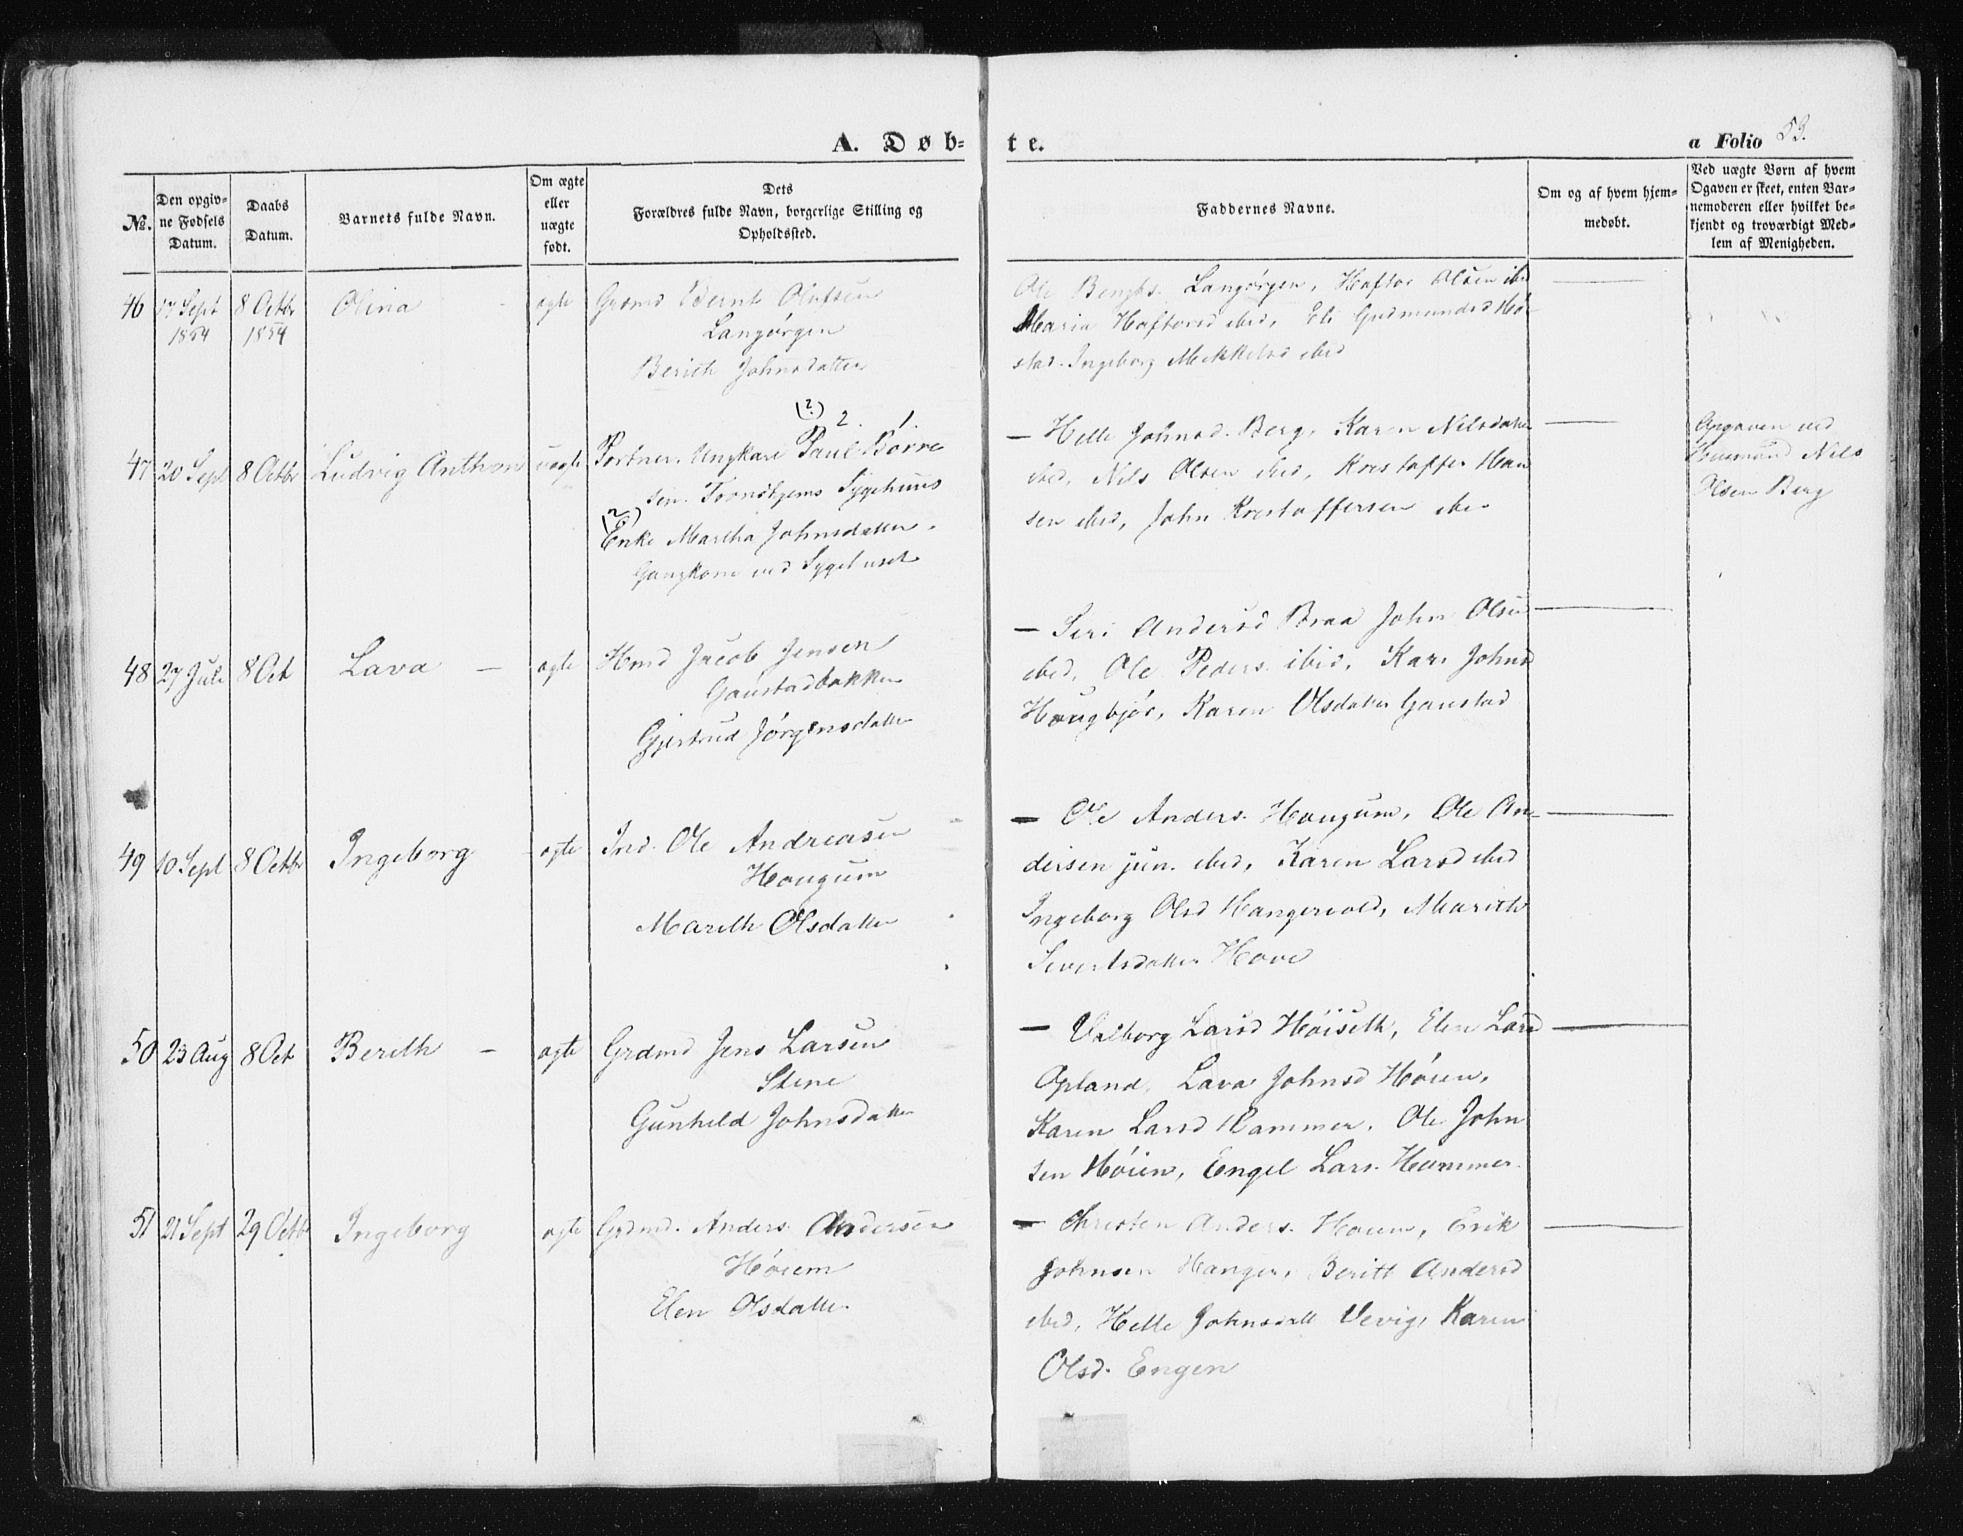 A. Døb-
te.
a Folio 53.
No.
Den opgiv-
ne Fødsels
Datum.
Daabs
Datum.
Barnets fulde Navn.
Om ægte
eller
uægte
født.
Dets
Forældres fulde Navn, borgerlige Stilling og
Opholdssted.
Faddernes Navne.
Om og af hvem hjem-
medøbt.
Ved uægte Børn af hvem
Ogaven er skeet, enten Bar-
nemoderen eller hvilket be-
kjendt og troværdigt Med-
lem af Menigheden.
46 17 Sept 8 Octbr Olina ægte Grdmd Bernt Olufsen
1854 1854 Langørgen
Berith Johnsdatter
Ole Bengts. Langørgen, Haftor Olsen ibd
Maria Haftorsd ibid, Eli Gudmundsd Hø-
stad. Ingeborg Mikkelsd ibid
47 20 Sept 8 Octbr Ludvig Anthon uægte Portner. Ungkarl Paul Børre
(?) 2. 1.
sen. Tronhjems Sygehuus
(?)
Enke Martha Johnsdatter.
Gangkone ved Sygehuset
— Helle Johnsd. Berg, Karen Nilsdatter
ibid, Nils Olsen ibid, Kristoffer Han
sen ibid, John Kristoffersen ibid
Opgaven ved
Huusmand Nils
Olsen Berg
48 27 Juli 8 Oct Lava — ægte Hmd Jacob Jensen
Gaustadbakken
Gjertrud Jørgensdatter
— Siri Andersd Braa John Olsen
ibid, Ole Peders. ibid, Kari Johnsd
Hougbjør, Karen Olsdatter Gaustad
49 10 Sept 8 Octbr Ingeborg ægte Ind. Ole Andreasen
Hougum
Marith Olsdatter
— Ole Anders. Hougum, Ole An-
dersen jun. ibid, Karen Larsd ibid
Ingeborg Olsd Hangervold, Marith
Sivertsdatter Hove
50 23 Aug 8 Oct Berith — ægte Grdmd Jens Larsen
Stene
Gunhild Johnsdatter
— Valborg Larsd Høiseth, Elen Larsd
Opland, Lava Johnsd Høien,
Karen Larsd Hammer. Ole John
sen Høien, Engel Lars. Hammer.
51 21 Sept 29 Octbr Ingeborg ægte Grdmd. Anders Andersen
Høiem
Elen Olsdatter.
— Christen Anders. Høiem, Erik
Johnsen Hanger, Beritt Andersd
ibid, Helle Johnsdatt Vevig, Karen
Olsd. Engen